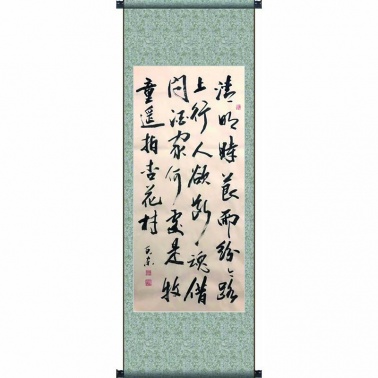 清明時節雨紛々路
上行人欲斷魂借
問酒家何處是牧
童遥指杏花村